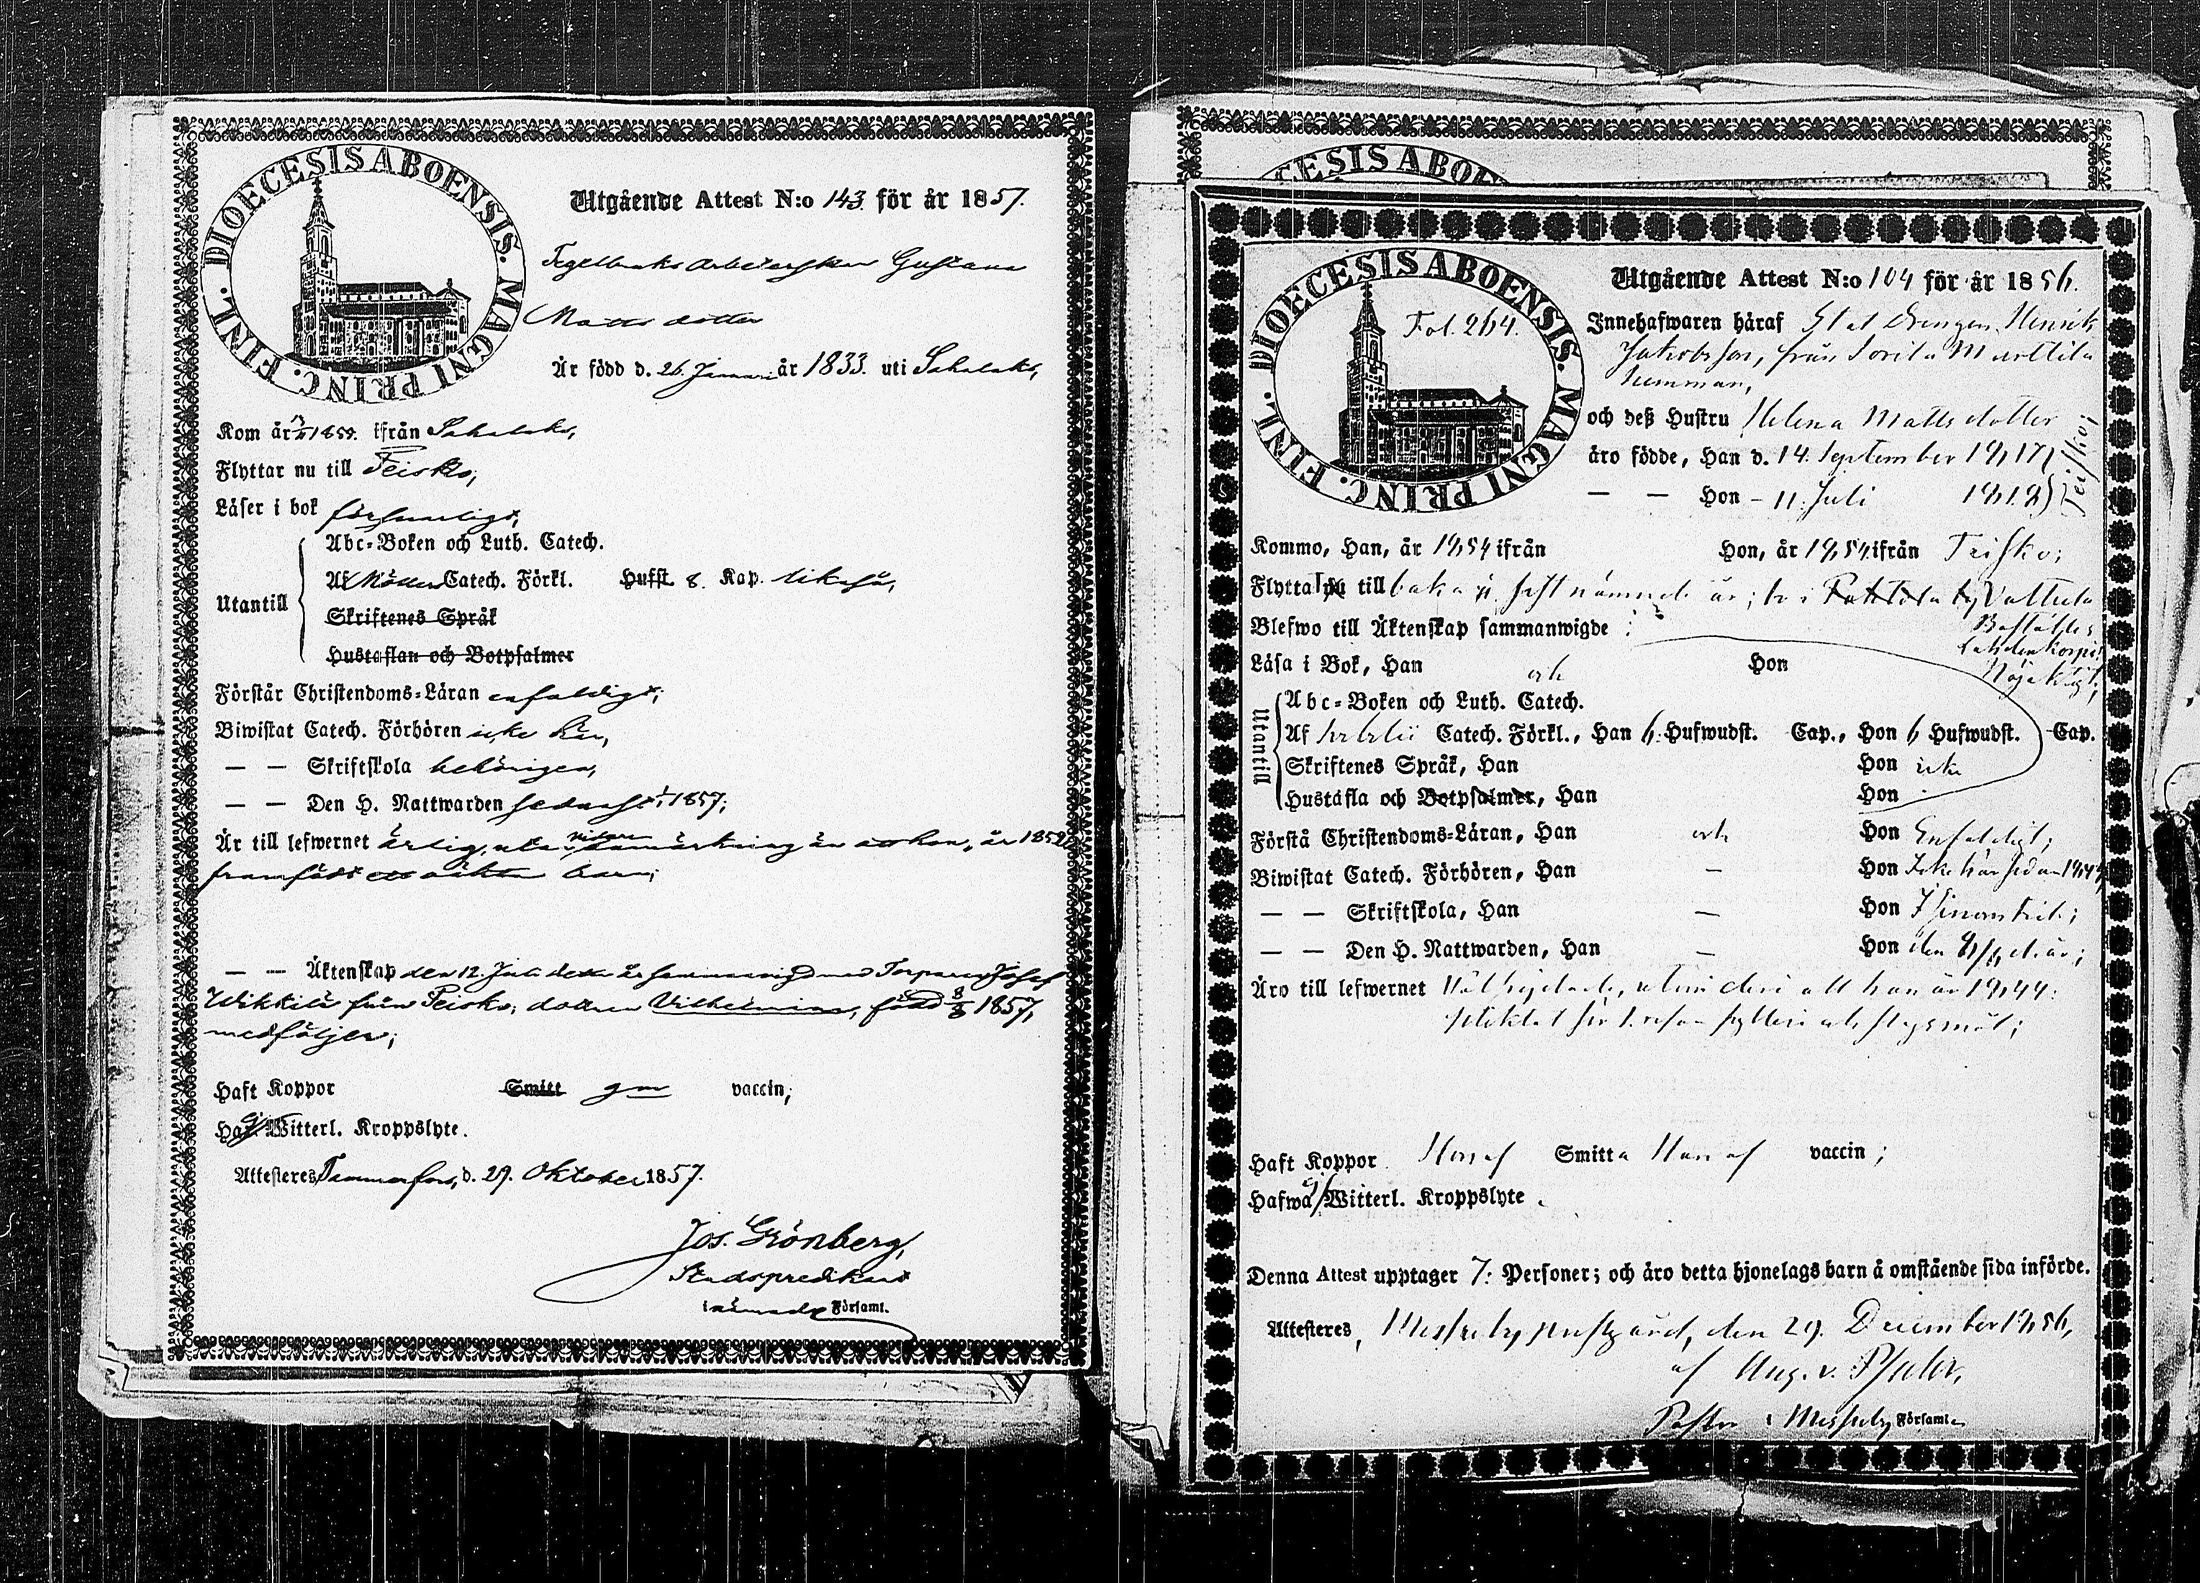 DIOECESIS ABOENSIS. MAGNI PRINC. FINL.
Utgående Attest N:o 143. för år 1857.
Tegelbruks arbeterskan Gustava
Matts dotter
Är född d. 26. Januari år 1833. uti Sahalaks,
Kom år 185 ifrån Sahalaks,
Flyttar nu till Teisko,
Läser i bok försvarligt,
Utantill
Abc-Boken och Luth. Catech.
Af Möllers Catech. Förkl. Hufst. 8. Kap. likaså,
Skriftenes Språk
Hustaflan och Botpsalmer
Förstår Christendoms-Läran enfaldigt;
Biwistat Catech. Förhören icke här,
— — Skriftskola behörigen,
— — Den H. Nattwarden sednast 1857;
Är till lefwernet ärlig, utan vidare anmärkning än att hon, år 1852,
framfödt ett oäkta barn;
— — Äktenskap den 12. Juli detta år sammanvigd med Torparen Josef
Wikkilä från Teisko; dottren Vilhelmina, född 8/8 1857,
medföljer;
Haft Koppor Smitt gm vaccin;
Haf. ej Witterl. Kroppslyte.
Attesteres Tammerfors, d. 29. Oktober 1857.
Jos. Grönberg,
Stadspredikant
i nämnde Församl.
CESIS ABOE
DIOECESIS ABOENSIS. MAGNI PRINC. FINL.
Fol. 264.
Utgående Attest N:o 104 för år 1856.
Innehafwaren häraf Statdrengen Henrik
Jakobsson, från Sorila Marttila
hemman,
och deß Hustru Helena Matts dotter
äro födde, Han d. 14. September 1817
— — Hon - 11. Juli 1818
Teisko;
Kommo, Han, år 1854 ifrån Hon, år 1854 ifrån Teisko;
Flytta nu till baka sistnämnde år; bo i by
Blefwo till Äktenskap sammanwigde
Läsa i Bok, Han och Hon Nöjaktigt;
Utantill
Abc-Boken och Luth. Catech.
Af Catech. Förkl., Han 6. Hufwudst. Cap., Hon 6 Hufwudst. Cap.
Skriftenes Språk, Han Hon icke
Hustafla och Botpsalmer, Han Hon
Förstå Christendoms-Läran, Han och Hon Enfaldigt;
Biwistat Catech. Förhören, Han — Hon Icke här sedan
— — Skriftskola, Han — Hon I sinom tid;
— — Den H. Nattwarden, Han — Hon den
Äro till lefwernet utom det att han år 1844
pliktat för och slagsmål;
Haft Koppor Hon af Smitta Han af vaccin;
Hafwa ej Witterl. Kroppslyte.
Denna Attest upptager 7: Personer; och äro detta hjonelags barn å omstående sida införde.
Attesteres, Messuby prestgård, den 29. December 1856,
af Aug. v. Pfaler,
Pastor i Messuby Församl.